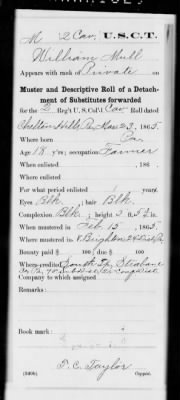 M 2 Cav. U.S.C.T.
William Mull
Appears with rank of Private on
Muster and Descriptive Roll of a Detach-
ment of Substitutes forwarded
for the 2 Reg't U. S. Col'd Cav Roll dated
Chelton Hills Pa. Mar 23, 1865.
Where born Pa.
Age 18 y'rs; occupation Farmer
When enlisted , 186 .
Where enlisted
For what period enlisted 1 years.
Eyes Blk. ; hair Blk.
Complexion Blk. ; height 5 ft. in.
When mustered in Feb 15, 1865.
Where mustered in N. Brighton 24 Dist Pa.
Bounty paid $ 100; due $ 100
Where credited South Strabane
Company to which assigned
Remarks:
Book mark:
T. C. Taylor
Copyist.